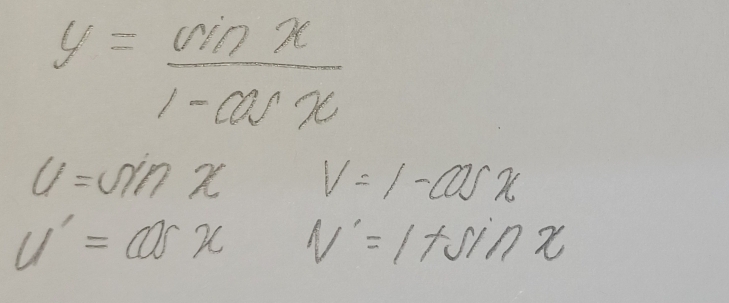 y = sin x / 1 - cos x
u = sin x v = 1 - cos x
u' = cos x v' = 1 + sin x